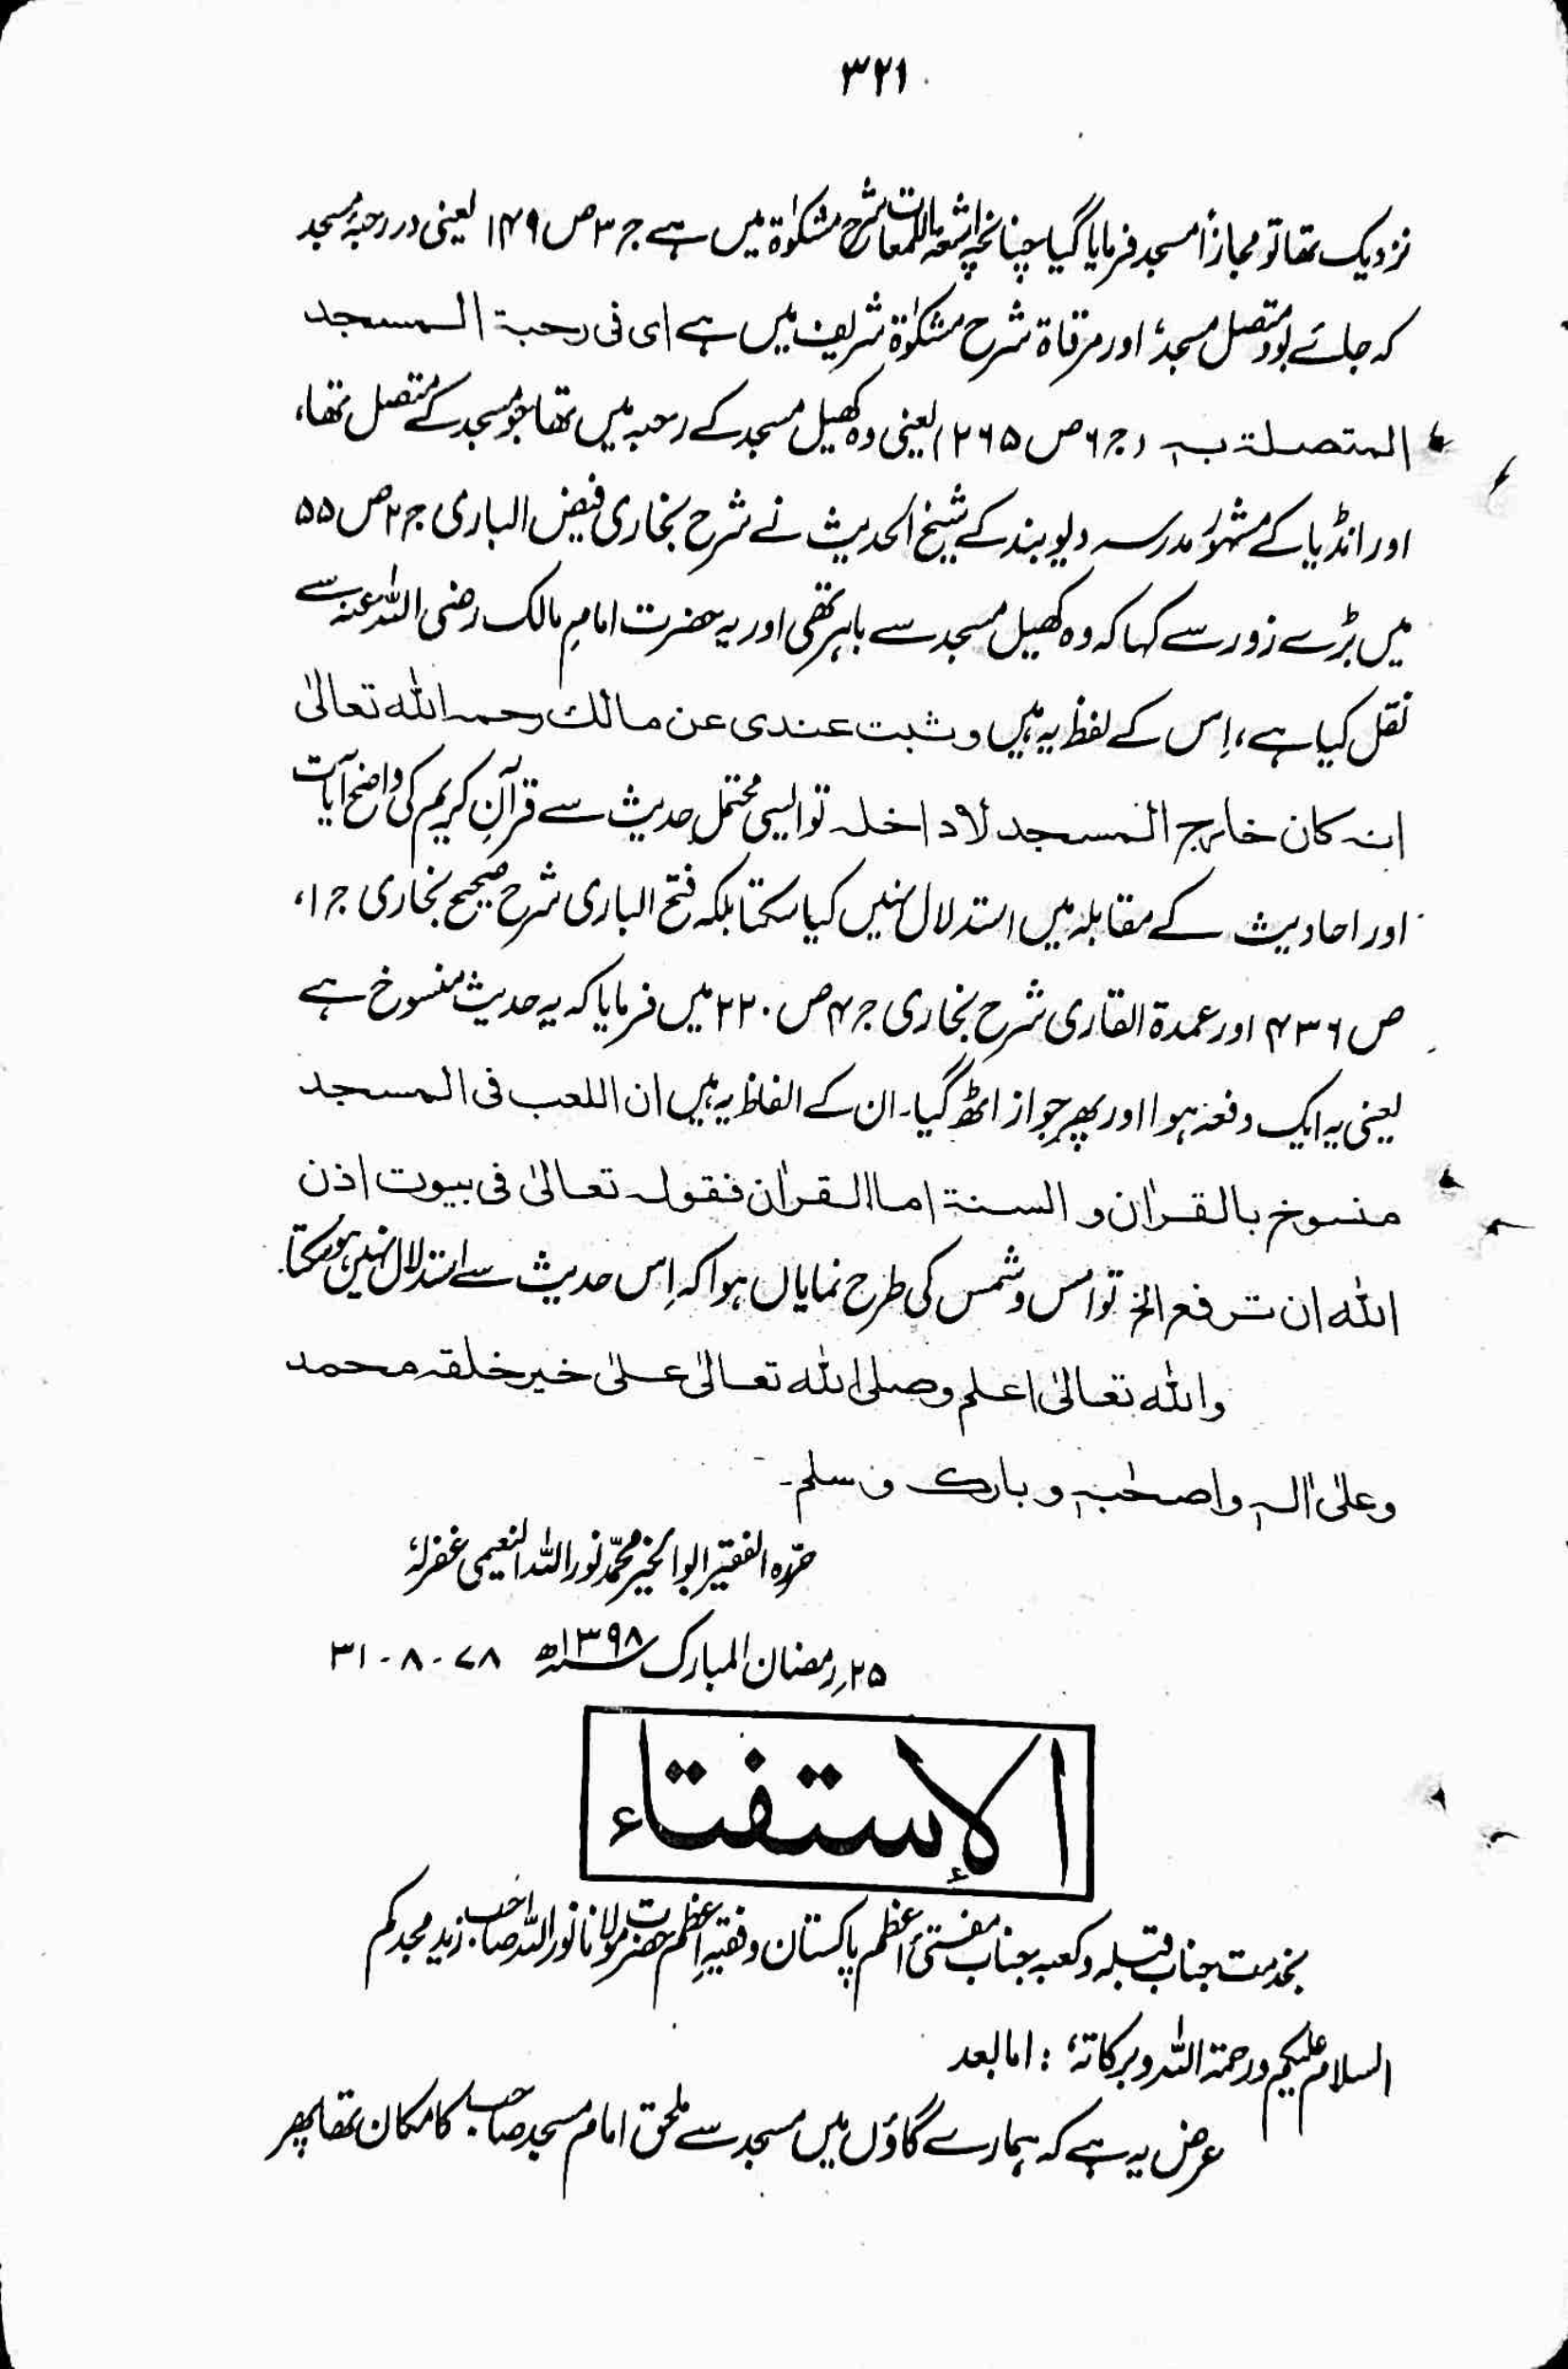 ۳۲۱
نزدیک تھا تو مجازاً مسجد فرمایا گیا چنانچہ اشعۃ اللمعات شرح مشکوٰۃ میں ہے جر ۳ ص ۱۴۹ لیعنی در رحبۂ مسجد
کہ جائے بود متصل مسجد، اور مرقاۃ شرح مشکوٰۃ شریف میں ہے ای فی رحبۃ المسجد
المتصلۃ بہ (جر ۶ ص ۲۶۵) یعنی وہ کھیل مسجد کے رحبہ میں تھا جو مسجد کے متصل تھا،
اور انڈیا کے مشہور مدرسہ دیوبند کے شیخ الحدیث نے شرح بخاری فیض الباری جر ۲ ص ۵۵
میں بڑے زور سے کہا کہ وہ کھیل مسجد سے باہر تھی اور یہ حضرت امامِ مالک رضی اللہ عنہ سے
نقل کیا ہے، اِس کے لفظ یہ ہیں وثبت عندی عن مالک رحمہ اللہ تعالیٰ
انہ کان خارج المسجد لاداخلہ تو ایسی محتمل حدیث سے قرآنِ کریم کی واضح آیات
اور احادیث کے مقابلہ میں استدلال نہیں کیا سکتا بلکہ فتح الباری شرح صحیح بخاری جر ۱،
ص ۴۳۶ اور عمدۃ القاری شرح بخاری جر ۴ ص ۲۲۰ میں فرمایا کہ یہ حدیث منسوخ ہے
یعنی یہ ایک دفعہ ہوا اور پھر جواز اٹھ گیا۔ ان کے الفاظ یہ ہیں ان اللعب فی المسجد
منسوخ بالقرآن و السنۃ اما القرآن فقولہ تعالیٰ فی بیوت اذن
اللہ ان ترفع الخ تو امس و شمس کی طرح نمایاں ہوا کہ اِس حدیث سے استدلال نہیں ہو سکتا۔
واللہ تعالیٰ اعلم وصلی اللہ تعالیٰ علیٰ خیر خلقہ محمد
وعلیٰ اٰلہٖ واصحٰبہٖ و بارک وسلم۔
حرّرہ الفقیر ابوالخیر محمّد نور اللہ النعیمی غفرلہٗ
۲۵؍ رمضان المبارک ۱۳۹۸ھ ۷۸-۸-۳۱
الإستفتاء
بخدمت جناب قبلہ و کعبہ جناب مفتیٔ اعظم پاکستان و فقیہِ اعظم حضرت مولانا نور اللہ صاحب زید مجدکم
السلام علیکم ورحمۃ اللہ وبرکاتہٗ : اما بعد
عرض یہ ہے کہ ہمارے گاؤں میں مسجد سے ملحق امام مسجد صاحب کا مکان تھا پھر